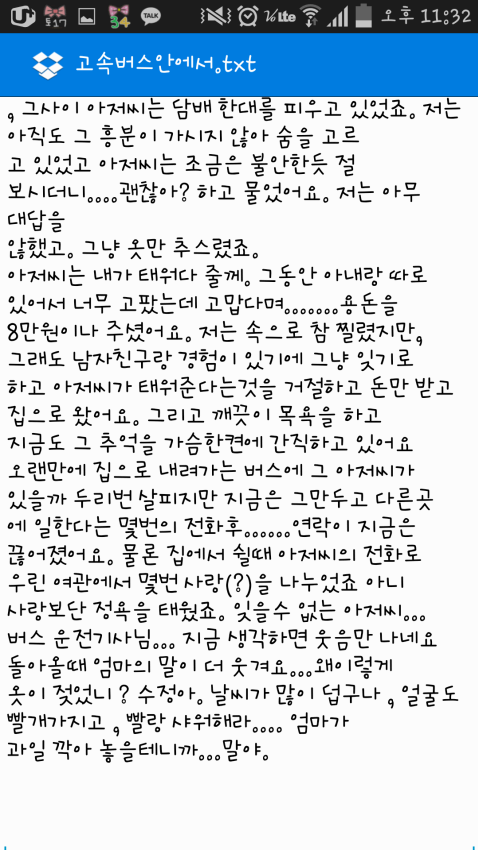 토17
34
TALK
LTE
오후 11:32
고속버스안에서.txt
, 그사이 아저씨는 담배 한대를 피우고 있었죠. 저는
아직도 그 흥분이 가시지 않아 숨을 고르
고 있었고 아저씨는 조금은 불안한듯 절
보시더니....괜찮아? 하고 물었어요. 저는 아무
대답을
않했고. 그냥 옷만 추스렸죠.
아저씨는 내가 태워다 줄께. 그동안 아내랑 따로
있어서 너무 고팠는데 고맙다며.......용돈을
8만원이나 주셨어요. 저는 속으로 참 찔렸지만,
그래도 남자친구랑 경험이 있기에 그냥 잊기로
하고 아저씨가 태워준다는것을 거절하고 돈만 받고
집으로 왔어요. 그리고 깨끗이 목욕을 하고
지금도 그 추억을 가슴한켠에 간직하고 있어요
오랜만에 집으로 내려가는 버스에 그 아저씨가
있을까 두리번 살피지만 지금은 그만두고 다른곳
에 일한다는 몇번의 전화후......연락이 지금은
끊어졌어요. 물론 집에서 쉴때 아저씨의 전화로
우린 여관에서 몇번 사랑(?)을 나누었죠 아니
사랑보단 정욕을 태웠죠. 잊을수 없는 아저씨...
버스 운전기사님... 지금 생각하면 웃음만 나네요
돌아올때 엄마의 말이 더 웃겨요...왜이렇게
옷이 젖었니? 수정아. 날씨가 많이 덥구나 , 얼굴도
빨개가지고 , 빨랑 샤워해라.... 엄마가
과일 깍아 놓을테니까...말야.